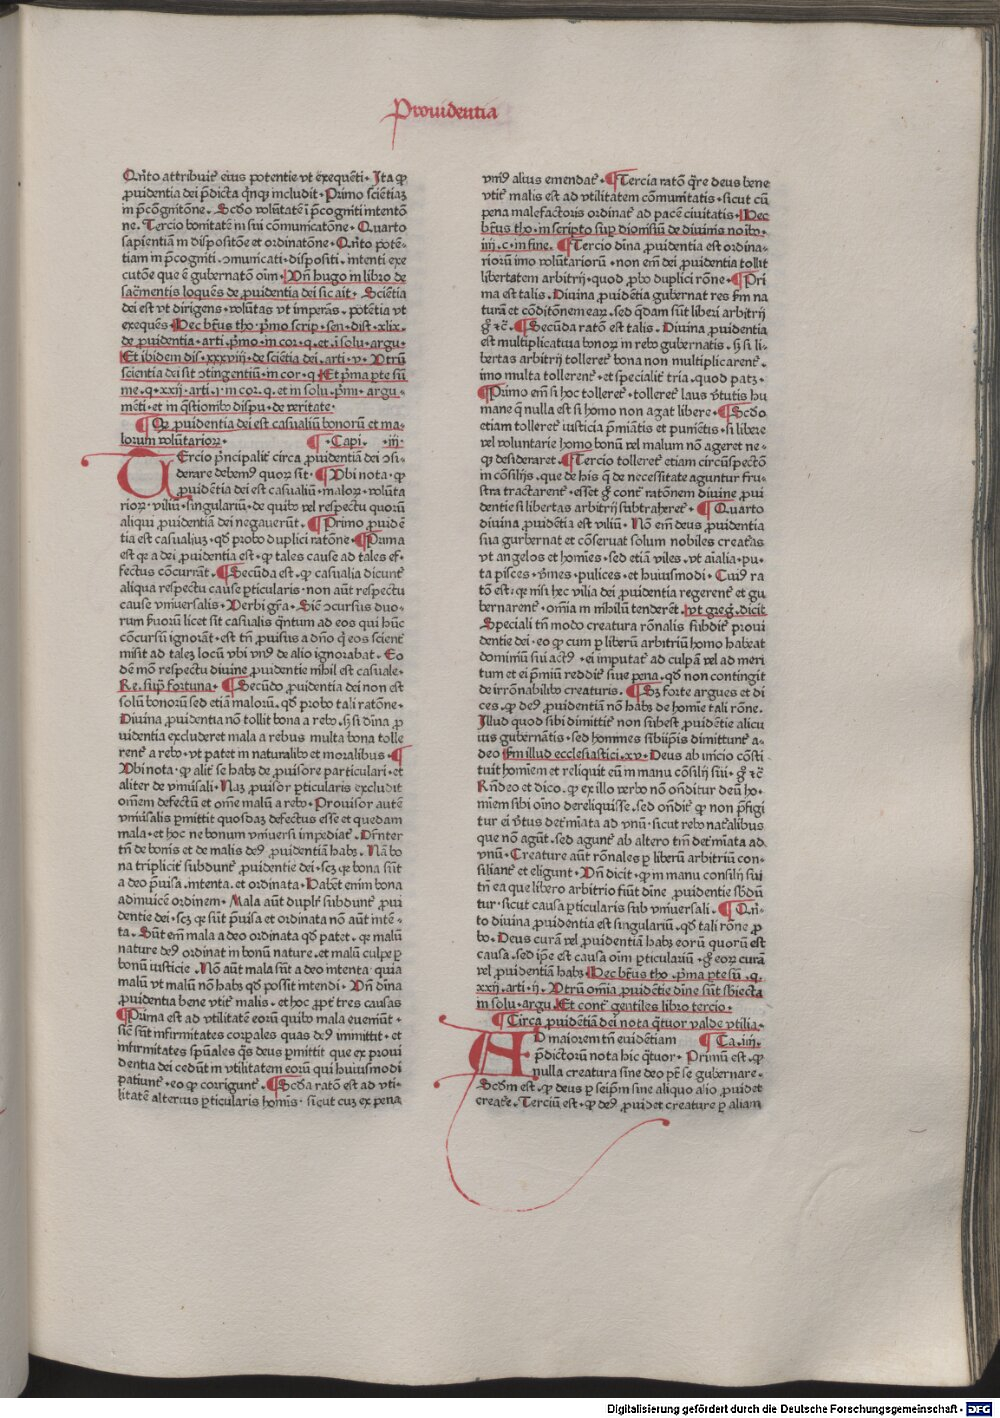 Prouidentia
Qn̄to attribuit᷑ eius potentie vt exequēti · Ita ꝙ
ꝓuidentia dei p̄dicta qͥnqꝫ includit · Primo scientiaꝫ
in p̄cōgnitōne · Scd̄o volūtatē ī p̄cogniti intentō
ne. Tercio bonitatē in sui cōmunicatōne · Quarto
sapientiam in dispositōe et ordinatōne · Qn̄to potē-
tiam in p̄cogniti · ꝯmunicati · dispositi · intenti exe
cutōne que ē gubernatō oīm · Vn̄ hugo in libro de
sac̄mentis loquēs de ꝓuidentia dei sic ait · Sciētia
dei est vt dirigens · volūtas vt imperās · potētia vt
exequēs · Hec bt̄us tho · pͥmo scrip · sen · dist · xlix ·
de ꝓuidentia · arti · pͥmo · in cor · q · et ī solu · argu ·
Et ibidem dis · xxxviij · de sciētia dei · arti · v · Vtrū
scientia dei sit ꝯtingentiū · in cor · q · Et pͥma ꝑte sū
me · q · xxij · arti · j · in cor · q · et in solu · pͥmi · argu-
mēti · et in qͣstionibꝰ dispu · de veritate ·
Qꝙ ꝓuidentia dei est casualiū bonorū et ma-
lorum volūtarioꝝ · Capi · iij ·
Tercio pͥncipalit᷑ circa ꝓuidentiā dei ꝯsi-
derare debemꝰ quoꝝ sit · Vbi nota · ꝙ
ꝓuidētia dei est casualiū · maloꝝ · volūta
rioꝝ · viliū · singulariū · de quibꝰ vel respectu quorū
aliqui ꝓuidentiā dei negauerūt · Primo ꝓuidē
tia est casualiuꝫ · qd̄ probo duplici ratōne · Prima
est qꝛ a dei ꝓuidentia est · ꝙ tales cause ad tales ef-
fectus cōcurrāt · Secūda est · ꝙ casualia dicunt᷑
aliqua respectu cause ꝑticularis · non aūt respectu
cause vniuersalis · Verbi gr̄a · Sic̄ ꝯcursus duo-
rum ſuorū licet sit casualis qͣntum ad eos qui hūc
cōcursū ignorāt · est tn̄ ꝓuisus a dn̄o qͥ eos scient᷑
misit ad taleꝫ locū vbi vnꝰ de alio ignorabat · Eo
dē mō respectu diuine ꝓuidentie nihil est casuale ·
Re. sup̄ fortuna · Secūdo ꝓuidentia dei non est
solū bonorū sed etiā malorū · qd̄ probo tali ratōne ·
Diuina ꝓuidentia nō tollit bona a rebꝰ · ꝫ si dīna ꝓ
uidentia excluderet mala a rebus multa bona tolle
rent᷑ a rebꝰ · vt patet in naturalibꝰ et moralibus ·
Vbi nota · ꝙ alit᷑ se habꝫ de ꝓuisore particulari · et
aliter de vniūsali · Naꝫ ꝓuisor ꝑticularis excludit
omēm defectū et omē malū a rebꝰ · Prouisor autē
vniūsalis ꝑmittit quosdaꝫ defectus esse et quedam
mala · et hoc ne bonum vniuersi impediat᷑ · Dr̄nter
tn̄ de bonis et de malis deꝰ ꝓuidentiā habꝫ · Nā bo
na triplicit᷑ subdunt᷑ ꝓuidentie dei · scꝫ qꝛ bona sūt
a deo p̄uisa · intenta · et ordinata · Habēt enim bona
adinuicē ordinem · Mala aūt dupl̄r subdunt᷑ ꝓui
dentie dei · scꝫ qꝛ sūt p̄uisa et ordinata nō aūt intē-
ta · Sūt em̄ mala a deo ordinata qd̄ patet · qꝛ malū
nature deꝰ ordinat in bonū nature · et malū culpe ꝑ
bonū iusticie · Nō aūt mala sūt a deo intenta · quia
malū vt malū nō habꝫ qd̄ possit intendi · Vn̄ dīna
ꝓuidentia bene vtit᷑ malis · et hoc ꝓpt᷑ tres causas
Prima est ad vtilitatē eorū quibꝰ mala eueniūt ·
sic̄ sūt infirmitates corꝑales quas deꝰ immittit · et
infirmitates spūales qͣs deus ꝑmittit que ex ꝓui
dentia dei cedūt in vtilitatem eorū qui huiusmodi
patiunt᷑ · eo ꝙ corrigunt᷑ · Scd̄a ratō est ad vti-
litatē alterius ꝑticularis homis̄ · sicut cuꝫ ex pena
vniꝰ alius emendat᷑ · Tercia ratō qͣre deus bene
vtit᷑ malis est ad vtilitatem cōmunitatis · sicut cū
pena malefactoris ordinat᷑ ad pacē ciuitatis · Hec
bt̄us tho · in scripto sup̄ dionisiū de diuinis noībꝰ ·
iiij · c · in fine · Tercio dīna ꝓuidentia est ordina-
riorū imo volūtariorū · non em̄ dei ꝓuidentia tollit
libertatem arbitrij · quod ꝓbo duplici rōne · Pri
ma est talis · Diuina ꝓuidētia gubernat res ẜm na
turā et cōditōnem eaꝝ · sed qͣdam sūt liberi arbitrij
gͦ ⁊c̄ · Secūda ratō est talis · Diuina ꝓuidentia
est multiplicatiua bonoꝝ in rebꝰ gubernatis · ꝫ si li-
bertas arbitrij tolleret᷑ bona non multiplicarent᷑ ·
imo multa tollerent᷑ · et specialit᷑ tria · quod patꝫ ·
Primo em̄ si hoc tolleret᷑ · tolleret᷑ laus v̄tutis hu
mane qͣ nulla est si homo non agat libere · Scd̄o
etiam tolleret᷑ iusticia p̄miātis et puniētis · si libere
vel voluntarie homo bonū vel malum nō ageret ne-
qꝫ desideraret · Tercio tolleret᷑ etiam circūspectō
in cōsilijs · que de his qͥ de necessitate aguntur fru-
stra tractarent᷑ · esset gͦ cont᷑ ratōnem diuine ꝓui
dentie si libertas arbitrij subtraheret᷑ · Quarto
diuina ꝓuidētia est viliū · Nō em̄ deus ꝓuidentia
sua gurbernat et cōseruat solum nobiles creat᷑as
vt angelos et homīes · sed etiā viles · vt aīalia · pu-
ta pisces · v̄mes · pulices · et huiusmodi · Cuiꝰ ra
tō est : qꝛ nisi hec vilia dei ꝓuidentia regerent᷑ et gu
bernarent᷑ · omīa in nihilū tenderent · vt greḡ · dicit
Speciali tn̄ modo creatura rōnalis subdit᷑ proui
dentie dei · eo ꝙ cum ꝑ liberū arbitriū homo habeat
dominiū sui actꝰ · ei imputat᷑ ad culpā vel ad meri
tum et ei p̄miū reddit᷑ siue pena · qd̄ non contingit
de irrōnabilibꝰ creaturis · Sꝫ forte argues et di
ces · ꝙ deꝰ ꝓuidentiā nō habꝫ de homīe tali rōne ·
Illud quod sibi dimittit᷑ non subest ꝓuidētie alicu
ius gubernātis · sed homines sibiip̄is dimittunt᷑ a-
deo ẜm illud ecclesiastici · xv · Deus ab inicio cōsti
tuit hominem et reliquit eū in manu cōsilij sui · gͦ ⁊c̄
Rn̄deo et dico · ꝙ ex illo verbo nō on̄ditur deū ho-
miem sibi oīno dereliquisse · sed on̄dit᷑ ꝙ non p̄figi
tur ei v̄tus det᷑miata ad vnū · sicut rebꝰ nat᷑alibus
que nō agūt · sed agunt᷑ ab altero tm̄ det᷑miata ad
vnū · Creature aūt rōnales ꝑ liberū arbitriū con-
siliant᷑ et eligunt · Vn̄ dicit · ꝙ in manu consilij sui
tn̄ ea que libero arbitrio fiūt dīne ꝓuidentie sbdūn
tur · sicut causa ꝑticularis sub vniuersali · Qn̄-
to diuina ꝓuidentia est singulariū · qd̄ tali rōne ꝓ
bo · Deus curā vel ꝓuidentiā habꝫ eorū quorū est
causa · sed ip̄e est causa oīm ꝑticulariū · gͦ eoꝝ curā
vel ꝓuidentiā habꝫ · Hec bt̄us tho · pͥma ꝑte sū · q ·
xxij · arti · ij · Vtrū omīa ꝓuidentie dīne sūt sbiecta
in solu · argu · Et cont᷑ gentiles libro tercio ·
Circa ꝓuidētiā dei nota qͣtuor valde vtilia ·
Ad maiorem tn̄ euidētiam Ca · iiij ·
p̄dictorū nota hic qͣtuor · Primū est · ꝙ
nulla creatura sine deo pt̄ se gubernare ·
Scd̄m est · ꝙ deus ꝑ seip̄m sine aliquo alio ꝓuidet
creat᷑e · Terciū est · ꝙ deꝰ ꝓuidet creature ꝑ aliam
Digitalisierung gefördert durch die Deutsche Forschungsgemeinschaft - DFG